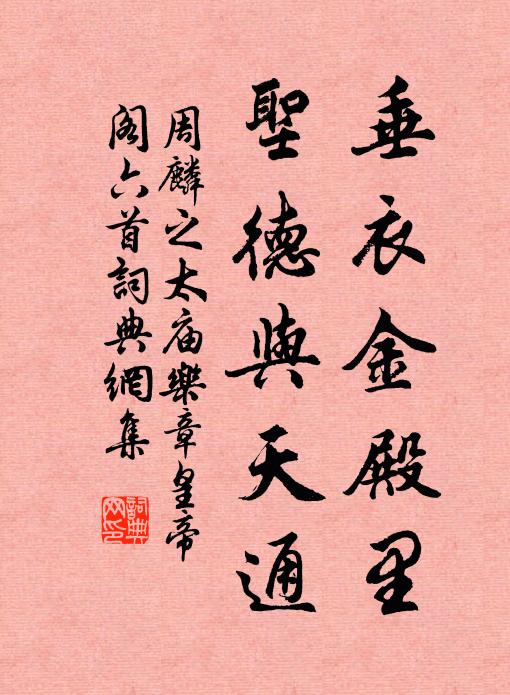 垂衣金殿里
聖德與天通
周麟之太庙樂章皇帝
阁六首詞典網集
詞典網印